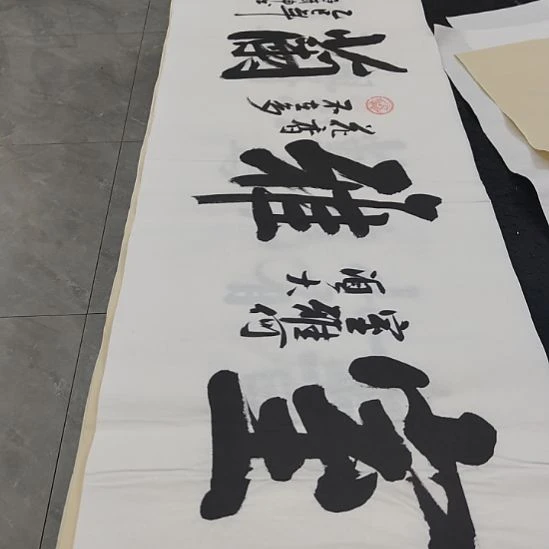 室
室雅何
須大
雅
花香
不在多
蘭
乙巳年